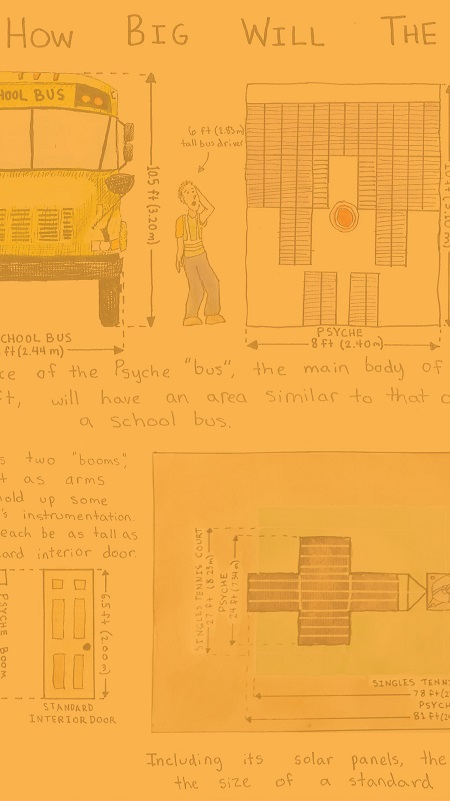 HOW BIG WILL THE
HOOL BUS
6 ft (1.83m)
tall bus driver
10.5 ft (3.20m)
CHOOL BUS
ft (2.44m)
PSYCHE
8 ft (2.40m)
ce of the Psyche "bus", the main body of
ft, will have an area similar to that o
a school bus.
s two "booms,"
t as arms
hold up some
's instrumentation.
each be as tall as
ard interior door.
PSYCHE BOOM
6.5 ft (2.00m)
STANDARD
INTERIOR DOOR
SINGLES TENNIS COURT
27 ft (8.23m)
PSYCHE
SINGLES TENNI
78 ft (2
PSYC
81 ft (2
Including its solar panels, the
the size of a standard